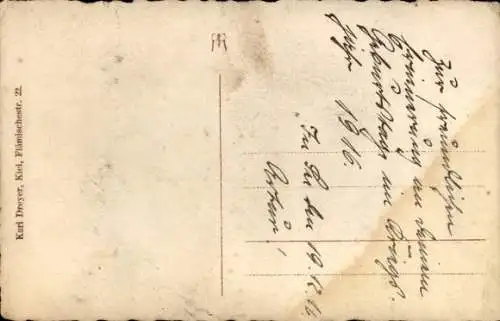 Karl Dreyer, Kiel, Flämischestr. 22.
Zur freundlichen
Erinnerung an Deinen
Geburtstag im Kriegs-
Jahr 1916.
den 19.
Arthur!